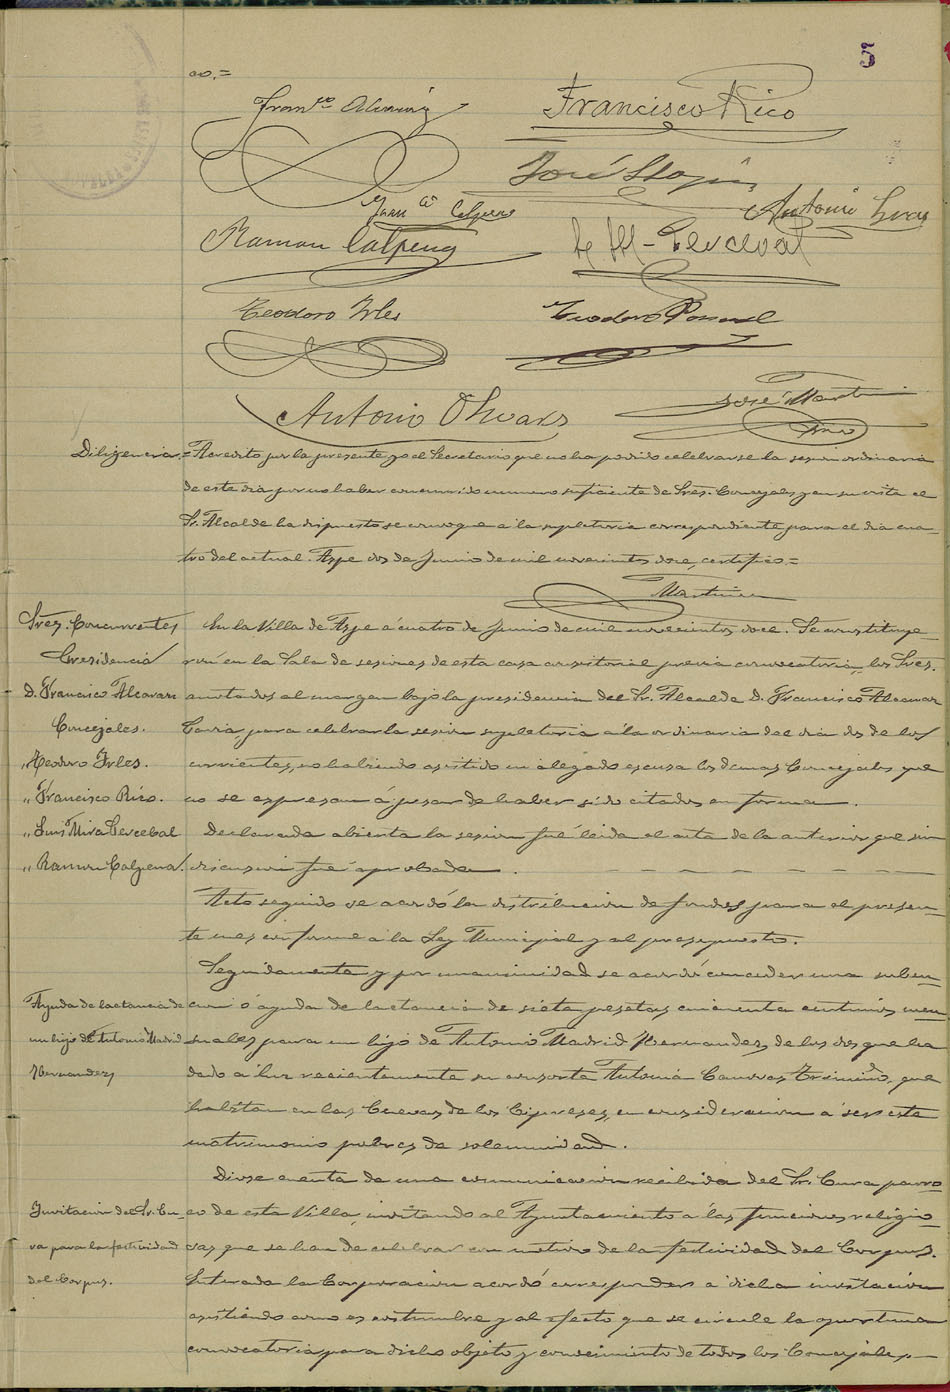 5
co.=
Franco Alcaraz
Francisco Rico
José
Juan Calpena
Antonio
Ramon Calpena
L M- Perceval
Teodoro Irles
Teodoro Pascual
Antonio Olivares
José Martinez
Diligencia.= Acredito por la presente yo el Secretario que no ha podido celebrarse la sesion ordinaria
de este dia por no haber concurrido numero suficiente de Sres. Concejales y en su vista el
Sr. Alcalde ha dispuesto se convoque a la supletoria correspondiente para el dia cua-
tro del actual. Aspe dos de Junio de mil novecientos doce, certifico=
Martinez
Sres. Concurrentes
Presidencia
D. Francisco Alcaraz
Concejales.
" Teodoro Irles.
" Francisco Rico.
" Luis Mira Percebal
" Ramon Calpena
En la Villa de Aspe á cuatro de Junio de mil novecientos doce. Se constituye-
ron en la Sala de sesiones de esta casa consistorial previa convocatoria, los Sres.
anotados al margen bajo la presidencia del Sr. Alcalde D. Francisco Alcaraz
para celebrar la sesion supletoria á la ordinaria del dia dos de los
corrientes, no habiendo asistido ni alegado escusa los demas Concejales que
no se expresan á pesar de haber sido citados en forma.
Declarada abierta la sesion fué leida el acta de la anterior que sin
discusion fué aprobada.
Acto seguido se acordó la distribucion de fondos para el presen-
te mes conforme a la Ley Municipal y al presupuesto.
Seguidamente y por unanimidad se acordó conceder una subven-
Ayuda de lactancia de
un hijo de Antonio Madrid
Hernandez
cion ó ayuda de lactancia de siete pesetas cincuenta centimos men-
suales para un hijo de Antonio Madrid Hernandez, de los dos que ha
dado a luz recientemente su consorte Antonia Canovas que
habitan en las Cuevas de los Cipreses, en consideracion a ser este
matrimonio pobres de solemnidad.
Diose cuenta de una comunicacion recibida del Sr. Cura parro-
Invitacion del Sr. Cu-
ra para la festividad
del Corpus.
co de esta Villa, invitando al Ayuntamiento a las funciones religio-
sas que se han de celebrar con motivo de la festividad del Corpus.
Enterada la Corporacion acordó corresponder a dicha invitacion
asistiendo como es costumbre y al efecto que se circule la oportuna
convocatoria para dicho objeto y conocimiento de todos los Concejales.—